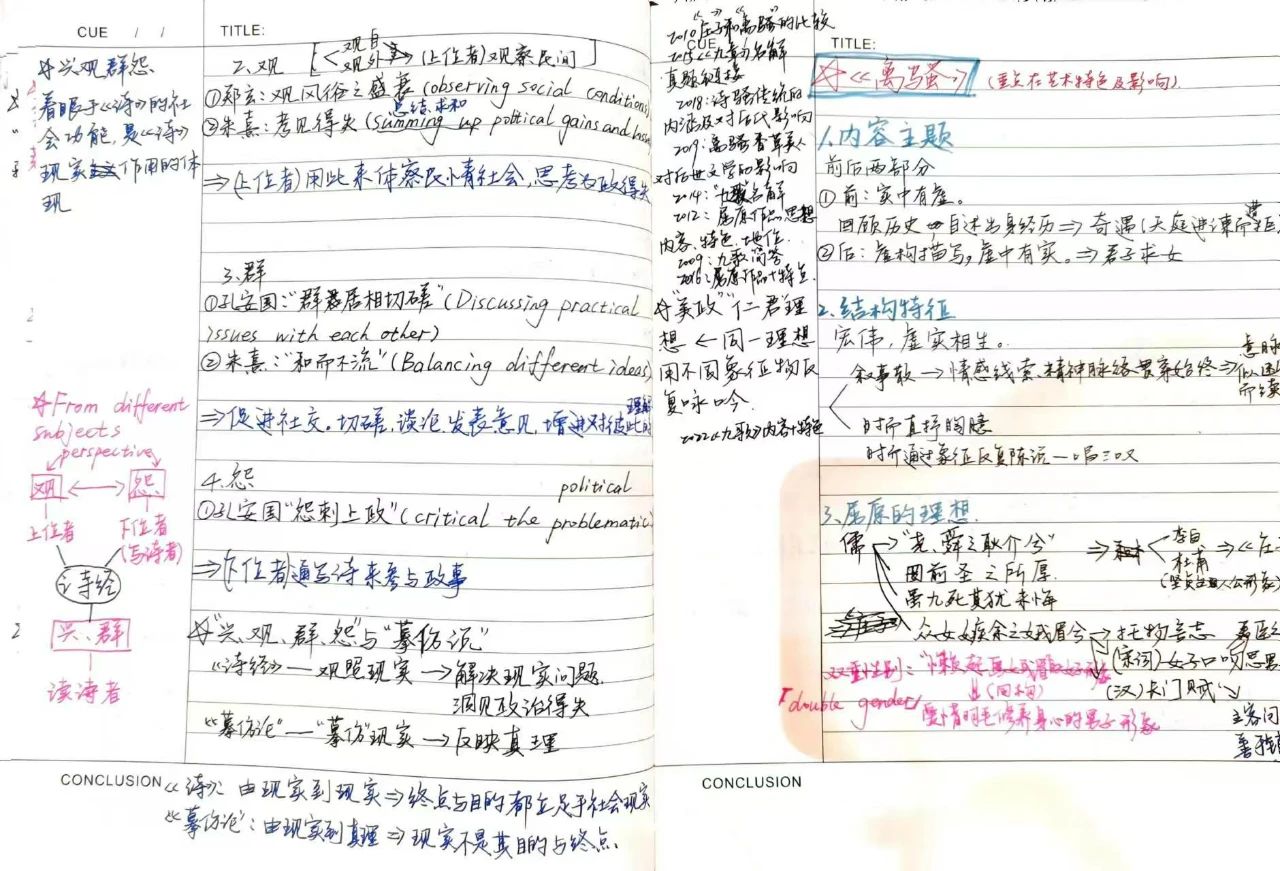 CUE / /
☆兴观群怨
着眼于《诗》的社
会功能,是《诗》
现实作用的体
现
☆From different
subjects
perspective
观 怨
上位者 下位者
(写诗者)
诗经
兴、群
读诗者
TITLE:
2.观 观自
观外 (上位者)观察民间
①郑玄:观风俗之盛衰(observing social conditions)
总结 求和
②朱熹:考见得失(summing up political gains and
⇒(上位者)用此来体察民情社会,思考为政得失
3.群
①孔安国:“群居相切磋”(Discussing practical
issues with each other)
②朱熹:“和而不流”(Balancing different ideas)
理解
⇒促进社交。切磋,谈论,发表意见,增进对彼此的
4.怨 political
①孔安国“怨刺上政”(critical the problematic
⇒(下位者)通写诗来参与政事
☆“兴、观、群、怨”与“摹仿说”
《诗经》— 观照现实 → 解决现实问题.
洞见政治得失
“摹仿论”—“摹仿”现实 → 反映真理
CONCLUSION
《诗》:由现实到现实⇒终点与目的都立足于社会现实
“摹仿论”:由现实到真理⇒现实不是其目的与终点.
CUE
2010《庄子》和《离骚》的比较
2015《九章》名解
真题链接
2018:诗骚传统的
内涵及对后代影响
2019:离骚香草美人
对后世文学的影响
2014:“九歌”名解
2012:屈原作品思想
内容、特色、地位.
2009:九歌简答
2016:屈原作品+特点.
☆“美政”“仁君”理
想 ← 同一理想
用不同象征物反
复咏吟.
2022《九歌》内容+特色
TITLE:
☆《离骚》(重点在艺术特色及影响)
1.内容主题
前后两部分
①前:实中有虚。
回顾历史 自述出身经历⇒奇遇(天庭进谏而
②后:虚构描写,虚中有实。⇒君子求女
2.结构特征
宏伟,虚实相生。
叙事散→情感线索、精神脉络贯穿始终⇒
意脉
似断
而续
时而直抒胸臆
时而通过象征反复陈说 一唱三叹
3.屈原的理想.
儒 “尧、舜之耿介兮”
固前圣之所厚.
虽九死其犹未悔
李白
杜甫
众女嫉余之蛾眉兮→托物言志
(宋词)女子口吻
(汉)长门赋
双重性别:
(同构)
double gender
重情明毛修养身心的男子形象
主客问
CONCLUSION